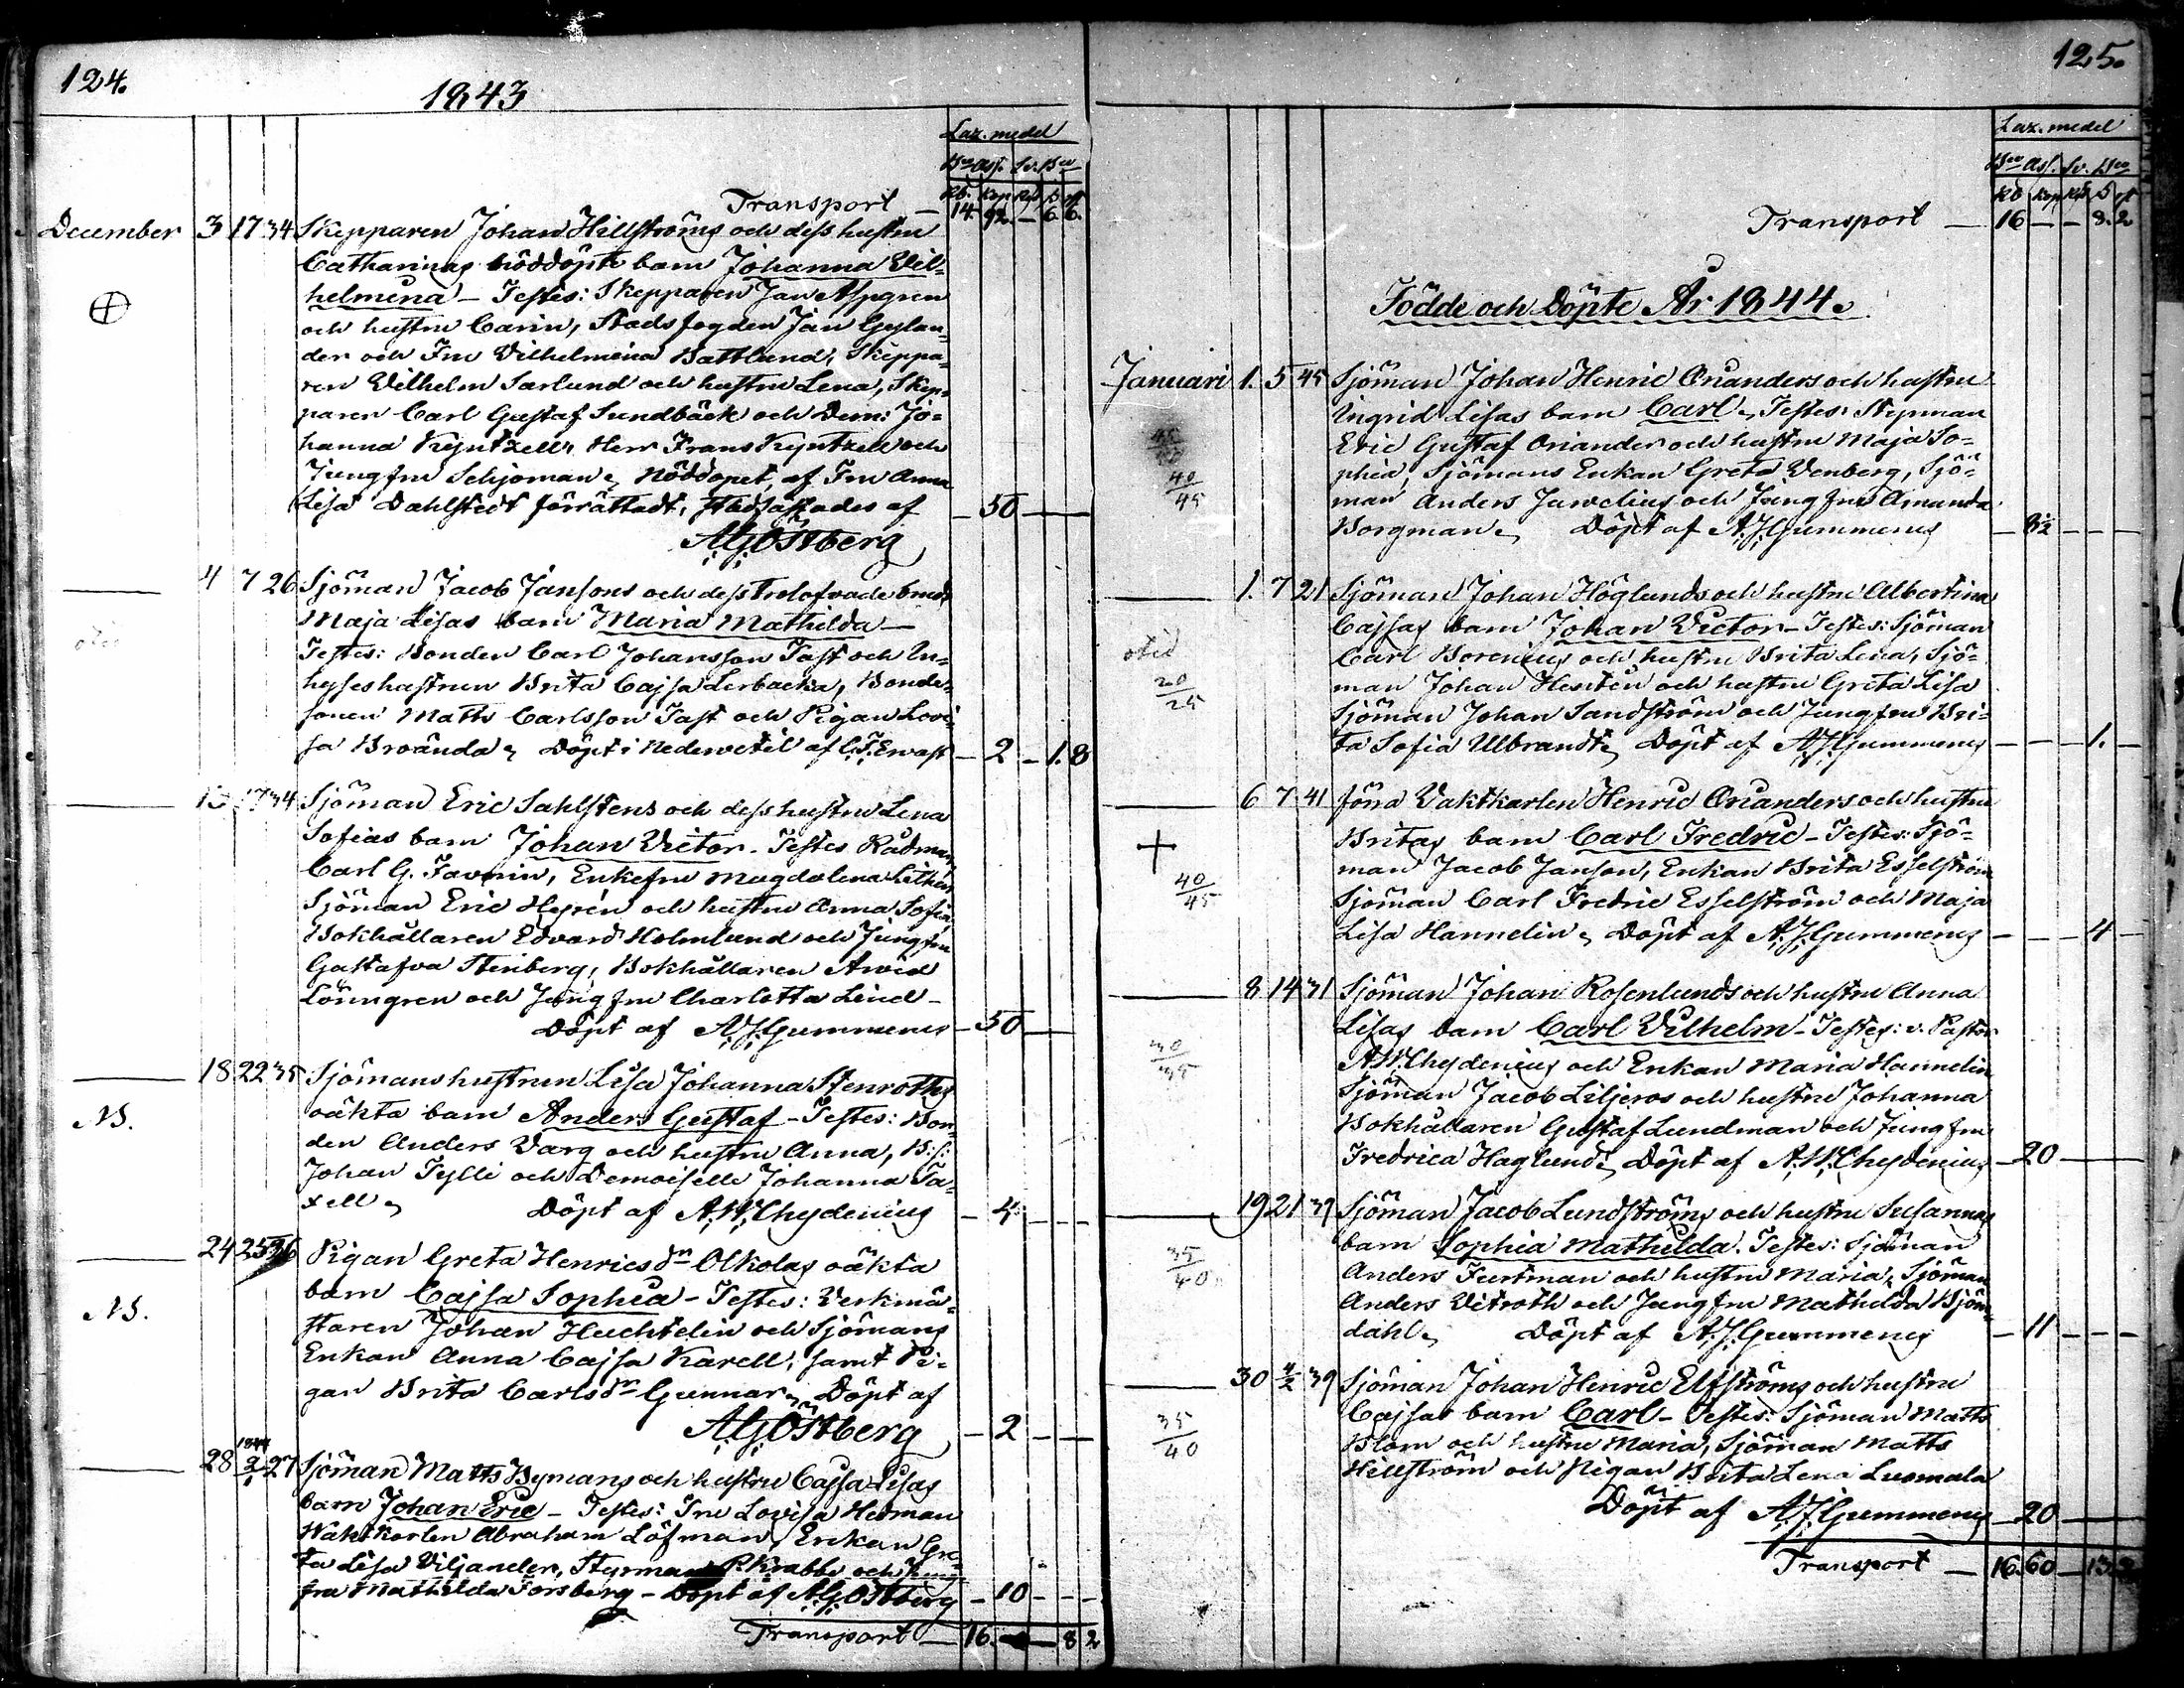 124.
1843
Laz. medel
Bco Ass. Sv. Bco
Rb. Kop. Rd. S. rst
Transport — 14. 92. — 6. 6.
December 3 17 34 Skepparen Johan Hillströms och dess hustru
Catharinas nöddöpte barn Johanna Vil-
helmina — Testes: Skepparen Jan Aspgren
och hustru Carin, Stads fogden Jan Gylan-
der och Fru Vilhelmina Battlund, Skeppa-
ren Vilhelm Sarlund och hustru Lena, Skep-
paren Carl Gustaf Sundbäck och Dem: Jo-
hanna Kyntzell, Herr Frans Kyntzell och
Jungfru Schjoman, Nöddopet, af Fru Anna
Lisa Dahlstedt förrättadt, stadfästades af — 50 —
A.G. Östberg
4 7 26 Sjöman Jacob Jansons och dess trolofvade brud
Maja Lisas barn Maria Mathilda —
Testes: Bonden Carl Johansson Tast och In-
hyseshustrun Brita Cajsa Lerbacka, Bonde-
sonen Matts Carlsson Tast och Pigan Lovi-
sa Brånda, Döpt i Nedervetil af C.F. Ervast — 2 — 1. 8
oted
13 17 34 Sjöman Eric Sahlstens och dess hustru Lena
Sofias barn Johan Victor — Testes Rådman
Carl G. Favorin, Enkefru Magdalena Lithén
Sjöman Eric Hegrén och hustru Anna Sofia
Bokhållaren Edvard Holmlund och Jungfru
Gustafva Stenberg, Bokhållaren Arvid
Lönngren och Jungfru Charlotta Lind —
Döpt af A.J. Gummerus — 50 —
18 22 35 Sjömanshustrun Lisa Johanna Stenroths
oäkta barn Anders Gustaf — Testes: Bon-
den Anders Varg och hustru Anna, B:S:
Johan Fylli och Demoiselle Johanna Ta-
xell, Döpt af A.W. Chydenius — 4 — — —
N.B.
24 25 26 Pigan Greta Henricsdr Olkolas oäkta
barn Cajsa Sophia — Testes: Verkmä-
staren Johan Huchtelin och Sjömans
Enkan Anna Cajsa Karell, samt Pi-
gan Brita Carlsdr Gunnar, Döpt af
A.G. Östberg — 2 — —
N.B.
1844
28 2/1 27 Sjöman Matts Bymans och hustru Cajsa Lisas
barn Johan Eric — Testes: Fru Lovisa Hedman
Waktkarlen Abraham Löfman, Enkan Gre-
ta Lisa Viljander, Styrman P. Krabbe och Jung-
fru Mathilda Forsberg — Döpt af A.G. Östberg — 10 — — —
Transport — 16. — — 8 2
125.
Laz. medel
Bco Ass. Sv. Bco
Rb Kop Rd S rst
Transport — 16 — — 8. 2
Födde och Döpte År 1844.
Januari 1. 5 45 Sjöman Johan Henric Orianders och hustru
Ingrid Lisas barn Carl, Testes: Styrman
Eric Gustaf Oriander och hustru Maja So-
phia, Sjömans Enkan Greta Venberg, Sjö-
man Anders Juvelius och Jungfru Amanda
Borgman, Döpt af A.J. Gummerus — 8½ — — —
40/45
1. 7 21 Sjöman Johan Höglunds och hustru Albertina
Cajsas barn Johan Victor — Testes: Sjöman
Carl Borenius och hustru Brita Lena, Sjö-
man Johan Hestén och hustru Greta Lisa
Sjöman Johan Sandström och Jungfru Bri-
ta Sofia Ulbrandt, Döpt af A.J. Gummerus — — — 1. —
oted
20/25
6 7 41 förra Vaktkarlen Henric Orianders och hustru
Britas barn Carl Fredric — Testes: Sjö-
man Jacob Janson, Enkan Brita Esselström
Sjöman Carl Fredric Esselström och Maja
Lisa Hannelin, Döpt af A.J. Gummerus — — — 4 —
+
40/45
8 14 31 Sjöman Johan Rosenlunds och hustru Anna
Lisas barn Carl Vilhelm — Testes: v. Pastor
A.W. Chydenius och Enkan Maria Hannelin
Sjöman Jacob Liljeros och hustru Johanna
Bokhållaren Gustaf Lundman och Jungfru
Fredrica Haglund, Döpt af A.W. Chydenius — 20 —
30/35
19 21 39 Sjöman Jacob Lundströms och hustru Susannas
barn Sophia Mathilda. Testes: Sjöman
Anders Furtman och hustru Maria, Sjöman
Anders Vitroth och Jungfru Mathilda Björn-
dahl, Döpt af A.J. Gummerus — 11 — — —
35/40
30 4/2 39 Sjöman Johan Henric Elfströms och hustru
Cajsas barn Carl — Testes: Sjöman Matts
Blom och hustru Maria, Sjöman Matts
Hillström och Pigan Brita Lena Luomala
Döpt af A.J. Gummerus — 20 —
35/40
Transport — 16. 60 — 13. 2